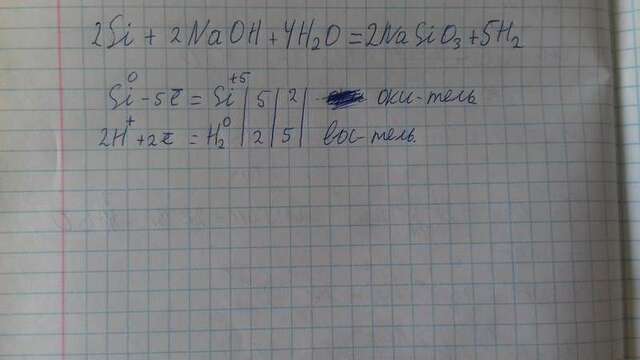 2Si + 2NaOH + 4H₂O = 2NaSiO₃ + 5H₂
Si⁰ - 5ē = Si⁺⁵ | 5 | 2 | оки-тель
2H⁺ + 2ē = H₂⁰ | 2 | 5 | вос-тель.